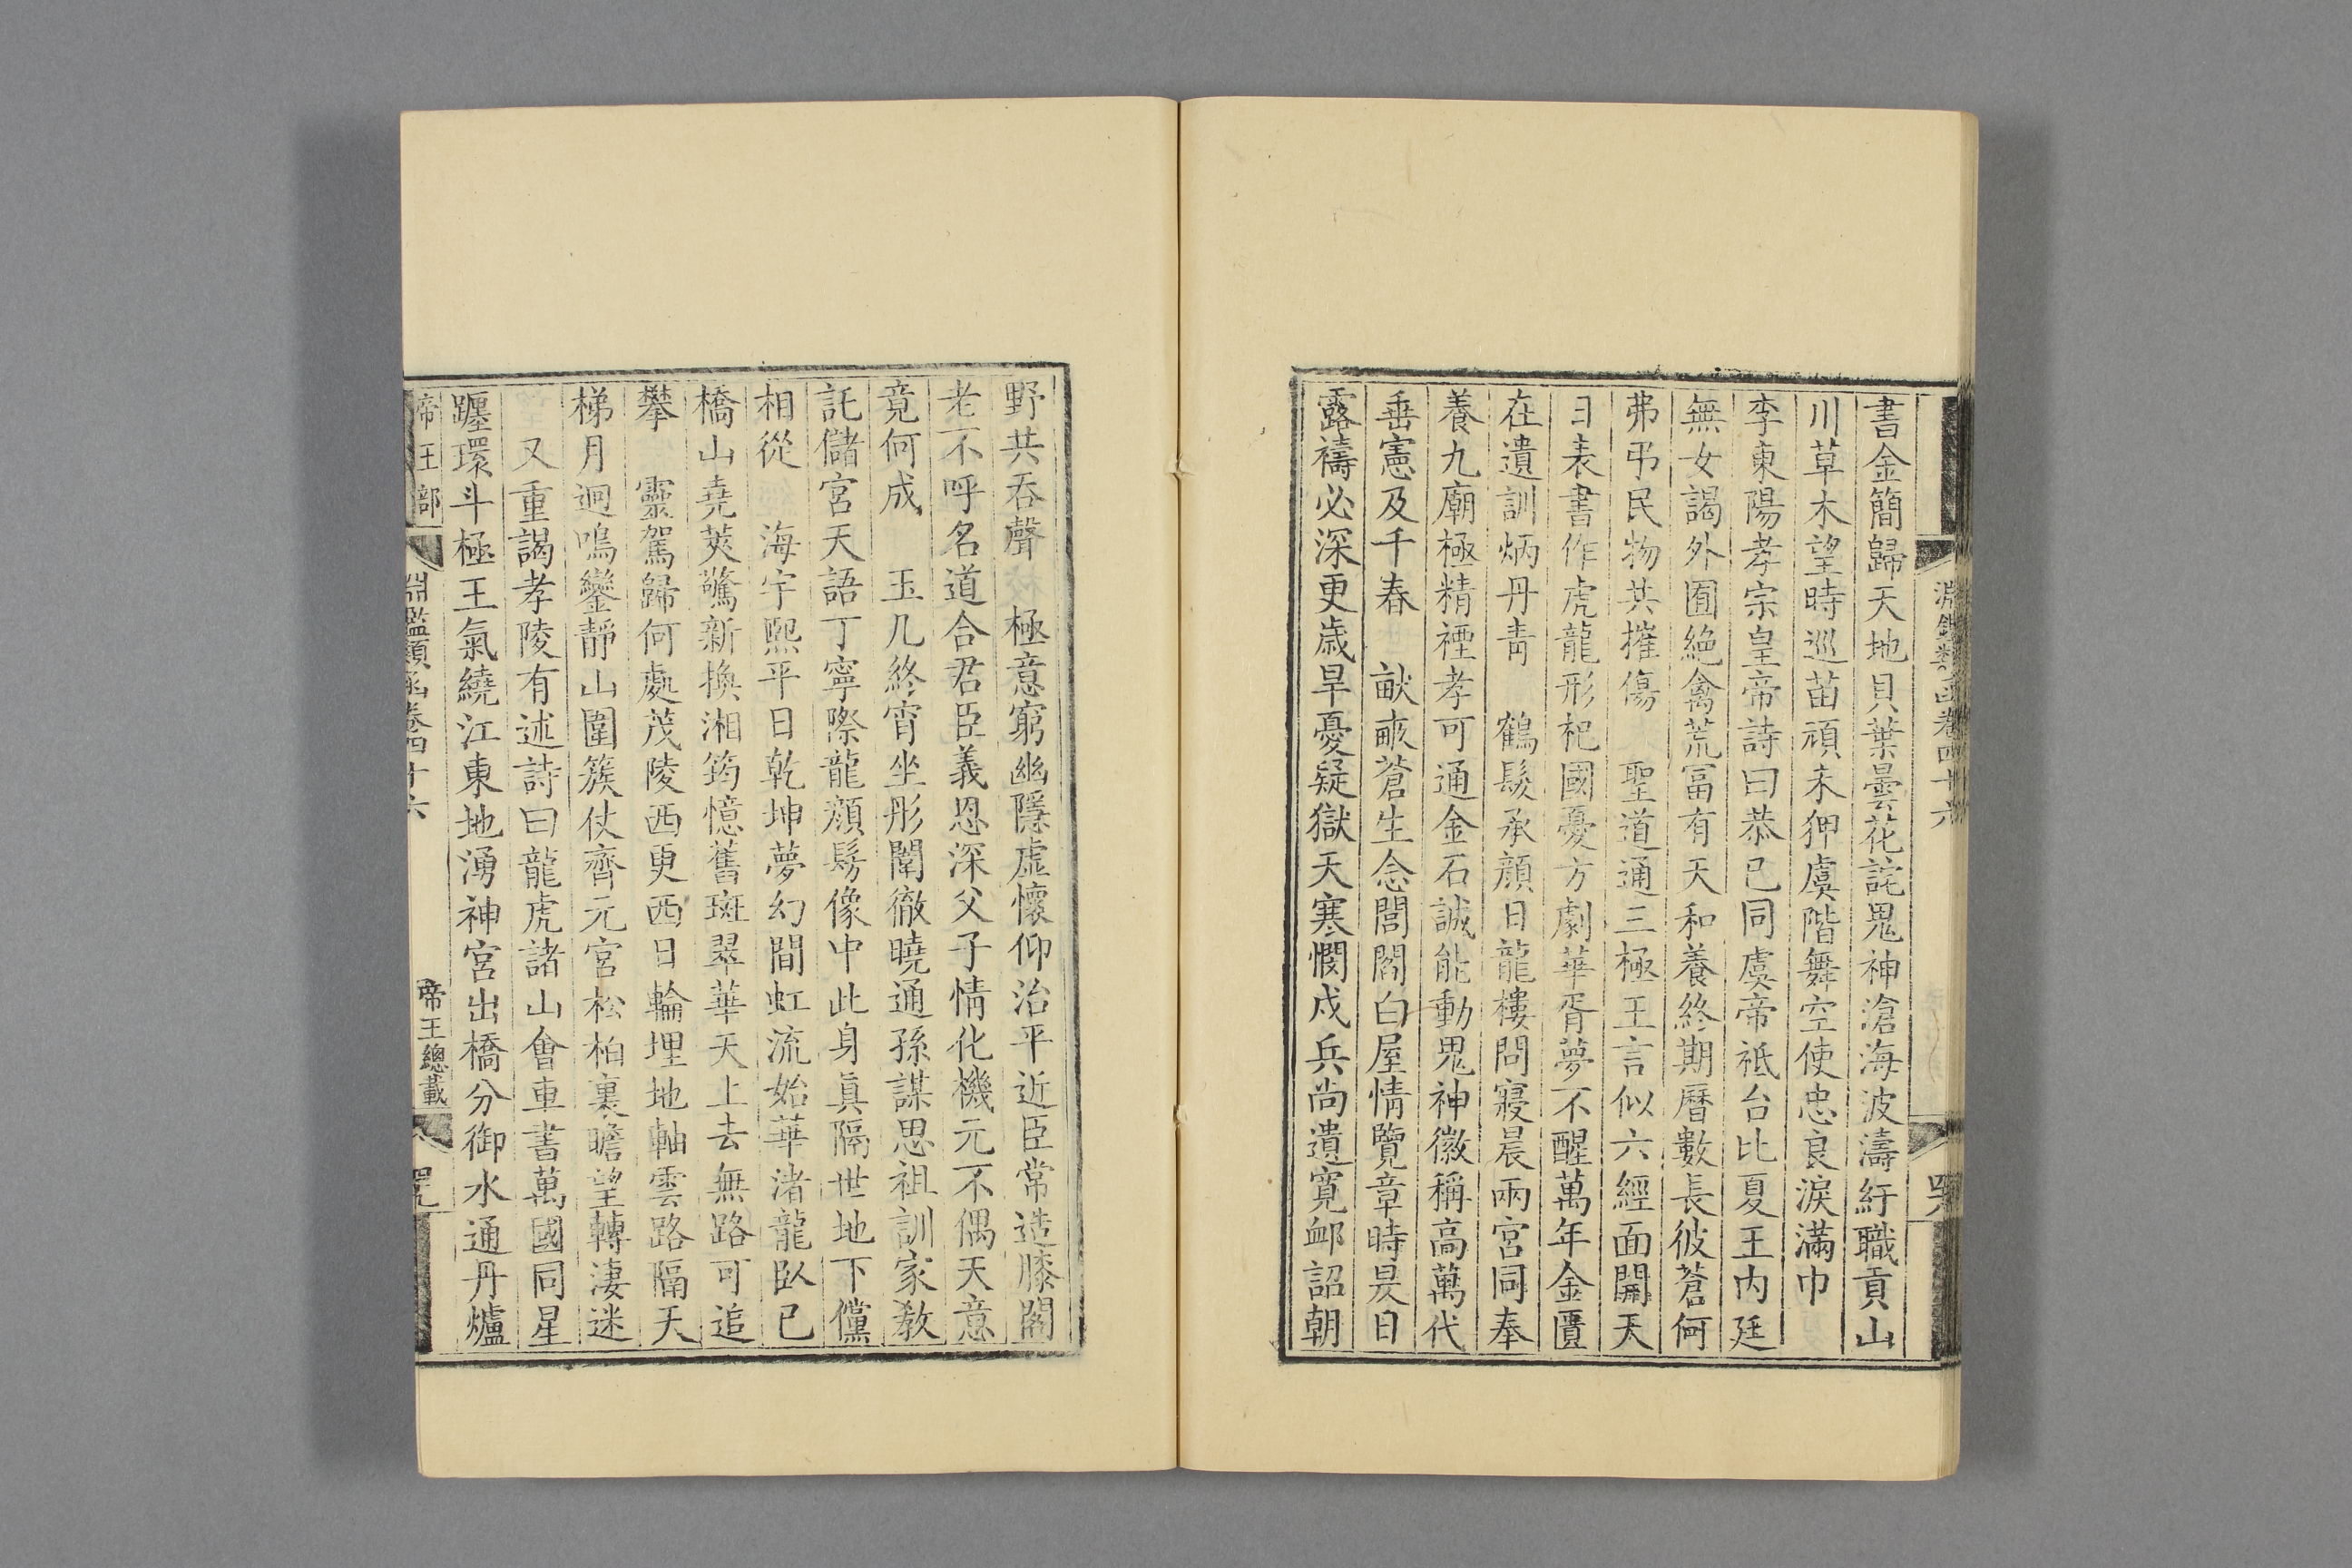 淵鑑類函卷四十六
書金簡歸天地貝葉曇花詫鬼神滄海波濤紆職貢山
川草木望時巡苗頑未狎虞階舞空使忠良淚滿巾
李東陽孝宗皇帝詩曰恭已同虞帝祗台比夏王内廷
無女謁外囿絶禽荒冨有天和養終期曆數長彼蒼何
弗弔民物共摧傷 聖道通三極王言似六經面開天
日表書作虎龍形杞國憂方劇華胥夢不醒萬年金匱
在遺訓炳丹青 鶴髮承顔日龍樓問寢晨兩宫同奉
養九廟極精禋孝可通金石誠能動鬼神徽稱高萬代
垂憲及千春 畎畝蒼生念閭閻白屋情覽章時昃日
露禱必深更歳旱憂疑獄天寒憫戍兵尚遺寛卹詔朝
野共吞聲 極意窮幽隱虚懷仰治平近臣常造膝閣
老不呼名道合君臣義恩深父子情化機元不偶天意
竟何成 玉几終宵坐彤闈徹曉通孫謀思祖訓家教
託儲宫天語丁寧際龍顔髣像中此身眞隔世地下儻
相從 海宇熙平日乾坤夢幻間虹流始華渚龍臥已
橋山堯莢驚新換湘筠憶舊斑翠華天上去無路可追
攀 靈駕歸何處茂陵西更西日輪埋地軸雲路隔天
梯月迥鳴鑾靜山圍簇仗齊元宫松柏裏瞻望轉淒迷
又重謁孝陵有述詩曰龍虎諸山會車書萬國同星
躔環斗極王氣繞江東地湧神宫出橋分御水通丹爐
帝王部 淵鑑類函卷四十六 帝王總載